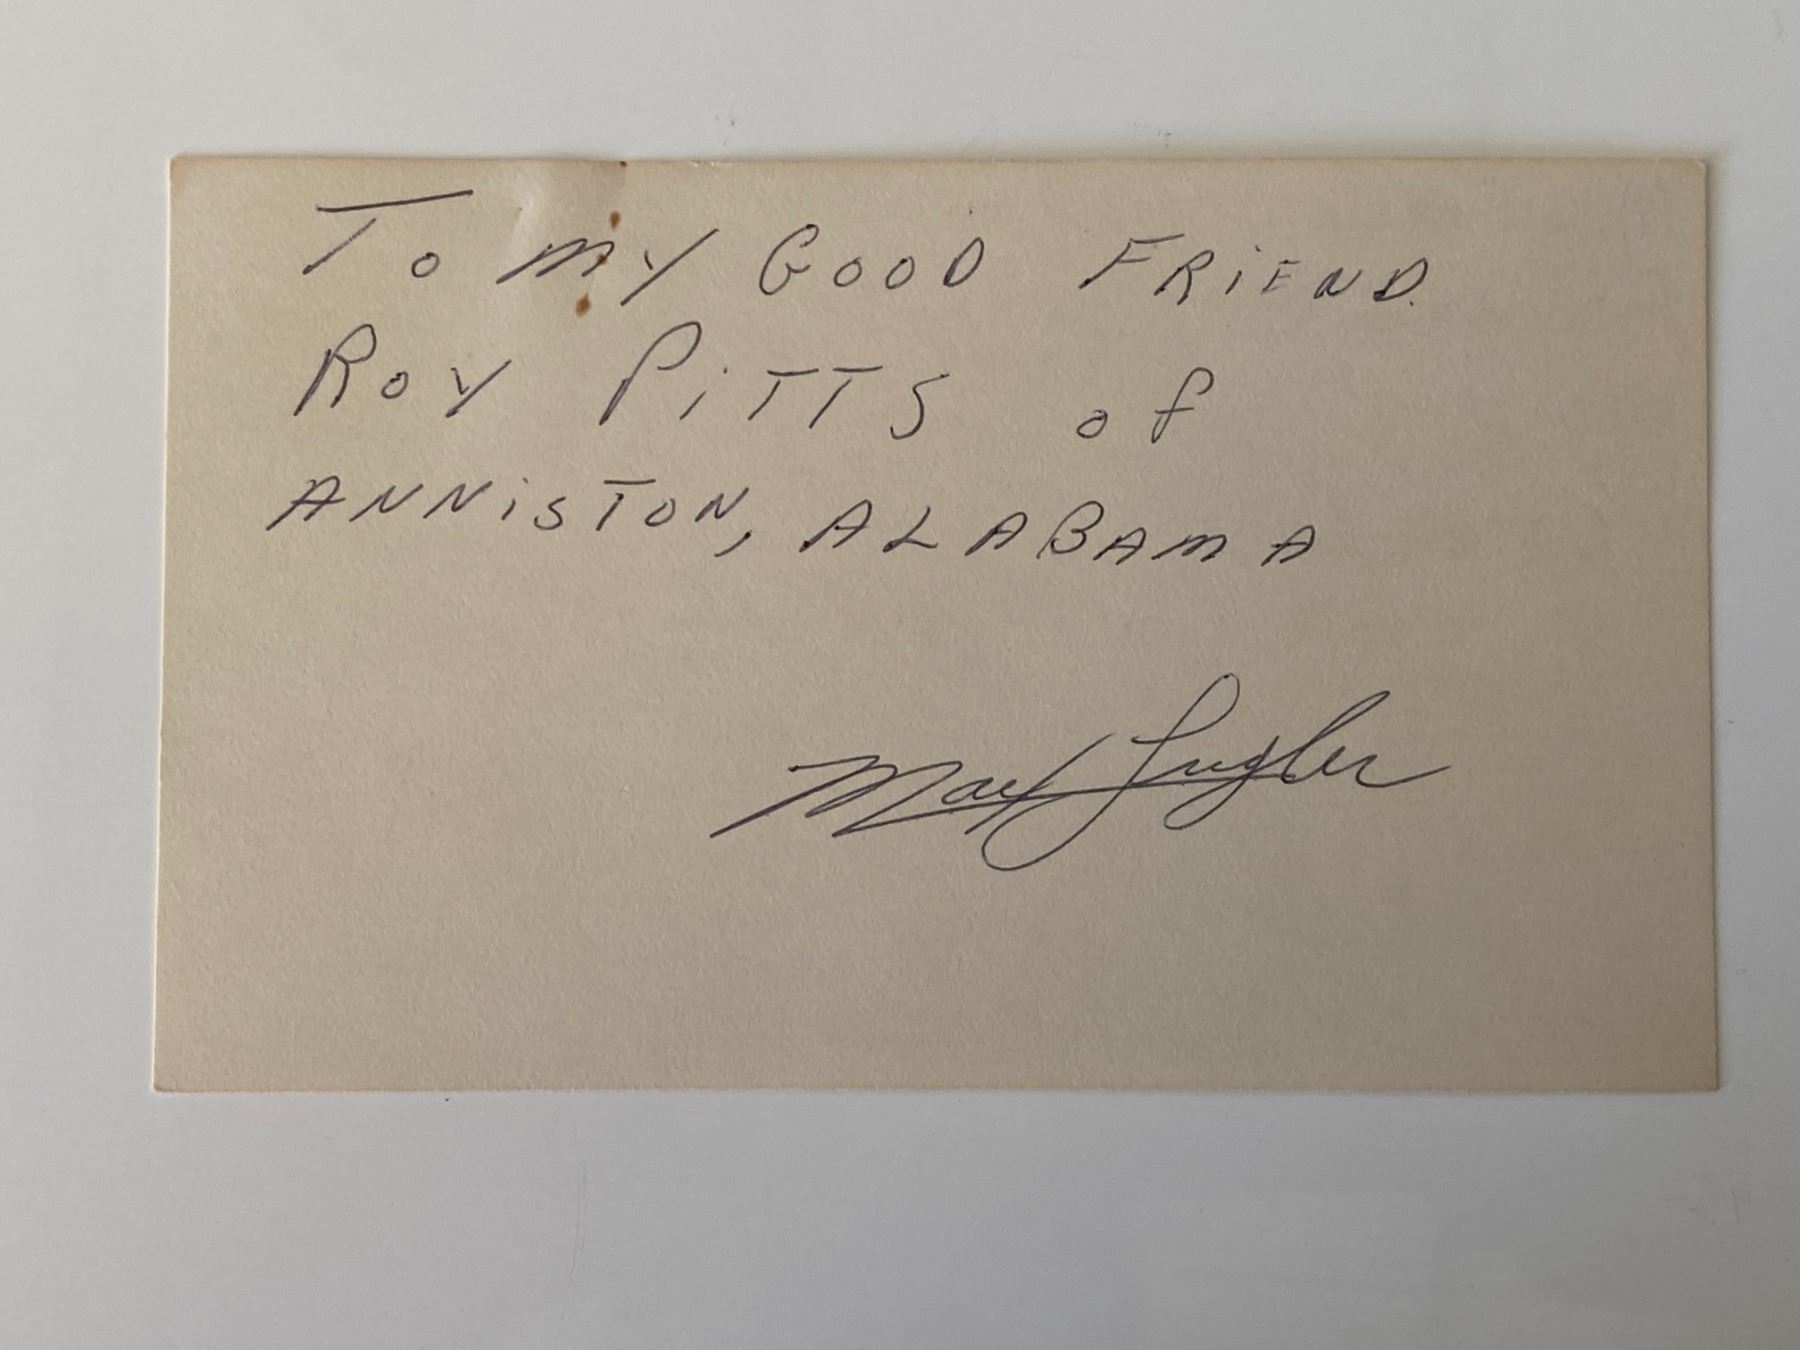 To my GOOD FRiEND.
Roy PiTTS of
ANNiSTON, ALABAMA